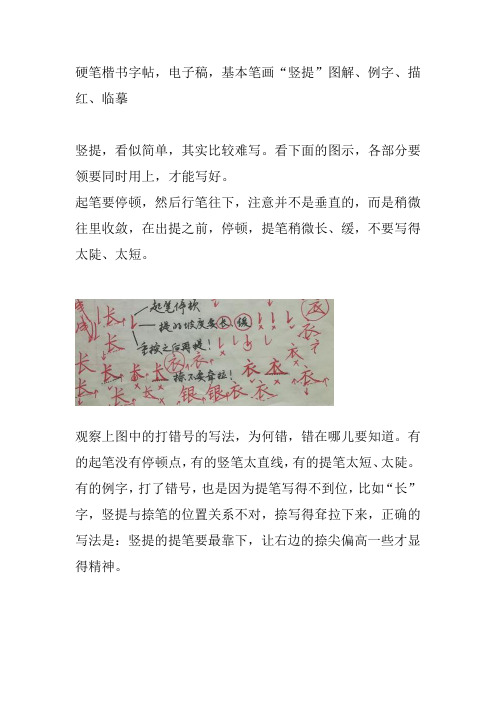 硬笔楷书字帖，电子稿，基本笔画“竖提”图解、例字、描
红、临摹
竖提，看似简单，其实比较难写。看下面的图示，各部分要
领要同时用上，才能写好。
起笔要停顿，然后行笔往下，注意并不是垂直的，而是稍微
往里收敛，在出提之前，停顿，提笔稍微长、缓，不要写得
太陡、太短。
长 起笔停顿 衣
提的坡度要长 缓
长 重按之后再提！ 衣
衣 衣 衣
长 长 长 长 捺不要耷拉！ 衣 衣
长 长 长 银 银 衣 衣
观察上图中的打错号的写法，为何错，错在哪儿要知道。有
的起笔没有停顿点，有的竖笔太直线，有的提笔太短、太陡。
有的例字，打了错号，也是因为提笔写得不到位，比如“长”
字，竖提与捺笔的位置关系不对，捺写得耷拉下来，正确的
写法是：竖提的提笔要最靠下，让右边的捺尖偏高一些才显
得精神。